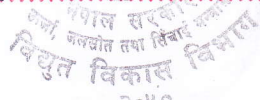 नेपाल सरकार
ऊर्जा, जलस्रोत तथा सिंचाई
विद्युत विकास विभाग